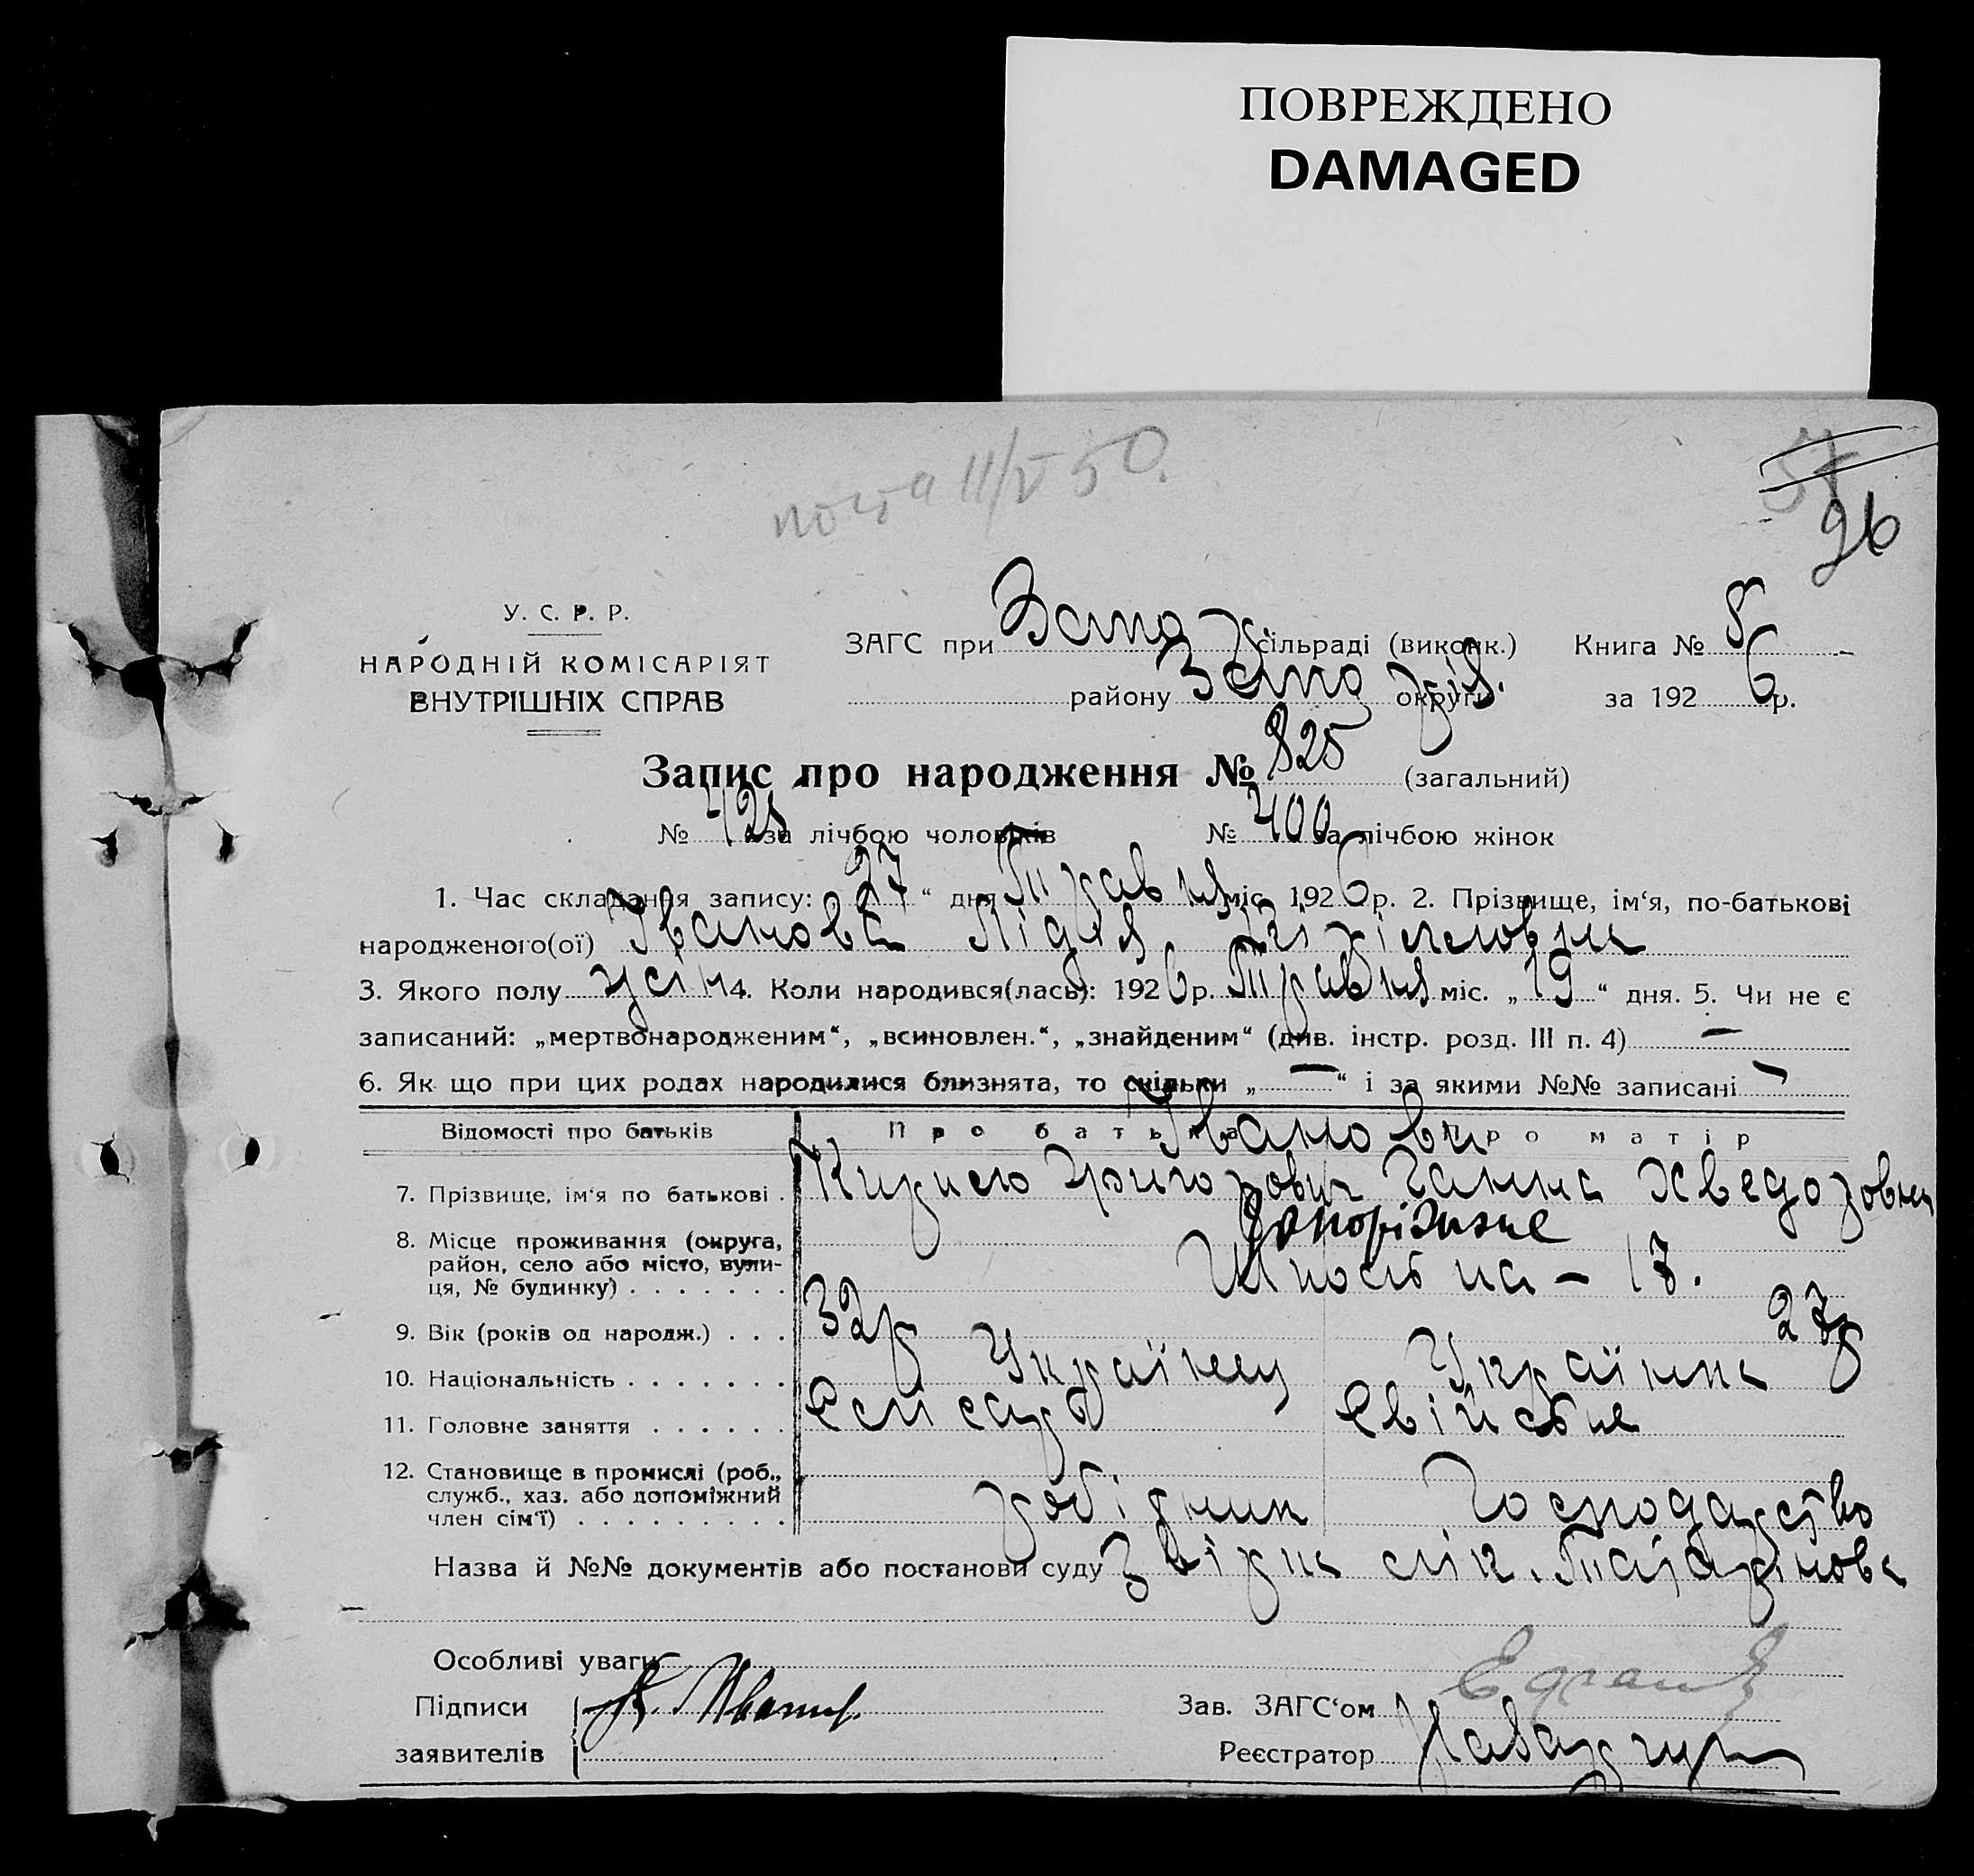 ПОВРЕЖДЕНО
DAMAGED
почта 11/V 50.
26
У. С. Р. Р.
НАРОДНІЙ КОМІСАРІЯТ
ВНУТРІШНІХ СПРАВ
ЗАГС при Запо сільраді (виконк.) Книга № 8
району Запоріз. округи за 1926 р.
Запис про народження № 825 (загальний)
№ 425 за лічбою чоловіків № 400 за лічбою жінок
1. Час складання запису: 27 “ дня Травня міс. 1926 р. 2. Прізвище, ім‘я, по-батькові
народженого(ої) Іванова Лідія
3. Якого полу 4. Коли народився(лась): 1926 р. Травня міс. „ 19 “ дня. 5. Чи не є
записаний: „мертвонародженим“, „всиновлен.“, „знайденим“ (див. інстр. розд. III п. 4) —
6. Як що при цих родах народилися близнята, то скільки „ — “ і за якими №№ записані —
Відомості про батьків Про батька Про матір
Іванови
7. Прізвище, ім‘я по батькові . Кирило Григорович Ганна Хведоровна
8. Місце проживання (округа, район, село або місто, вулиця, № будинку) . . . . . . . Запоріжже
Шкільна – 17.
9. Вік (років од народж.) . . . 32р 27р
10. Національність . . . . . . . Українец Українка
11. Головне заняття . . . . . . Слісарь Свійське
12. Становище в промислі (роб., служб., хаз. або допоміжний член сім‘ї) . . . . . . . . . робітник Господарство
Назва й №№ документів або постанови суду Звірка лік. Татарінова
Особливі уваги
Підписи
заявителів
К. Иванов
Зав. ЗАГС‘ом
Реєстратор